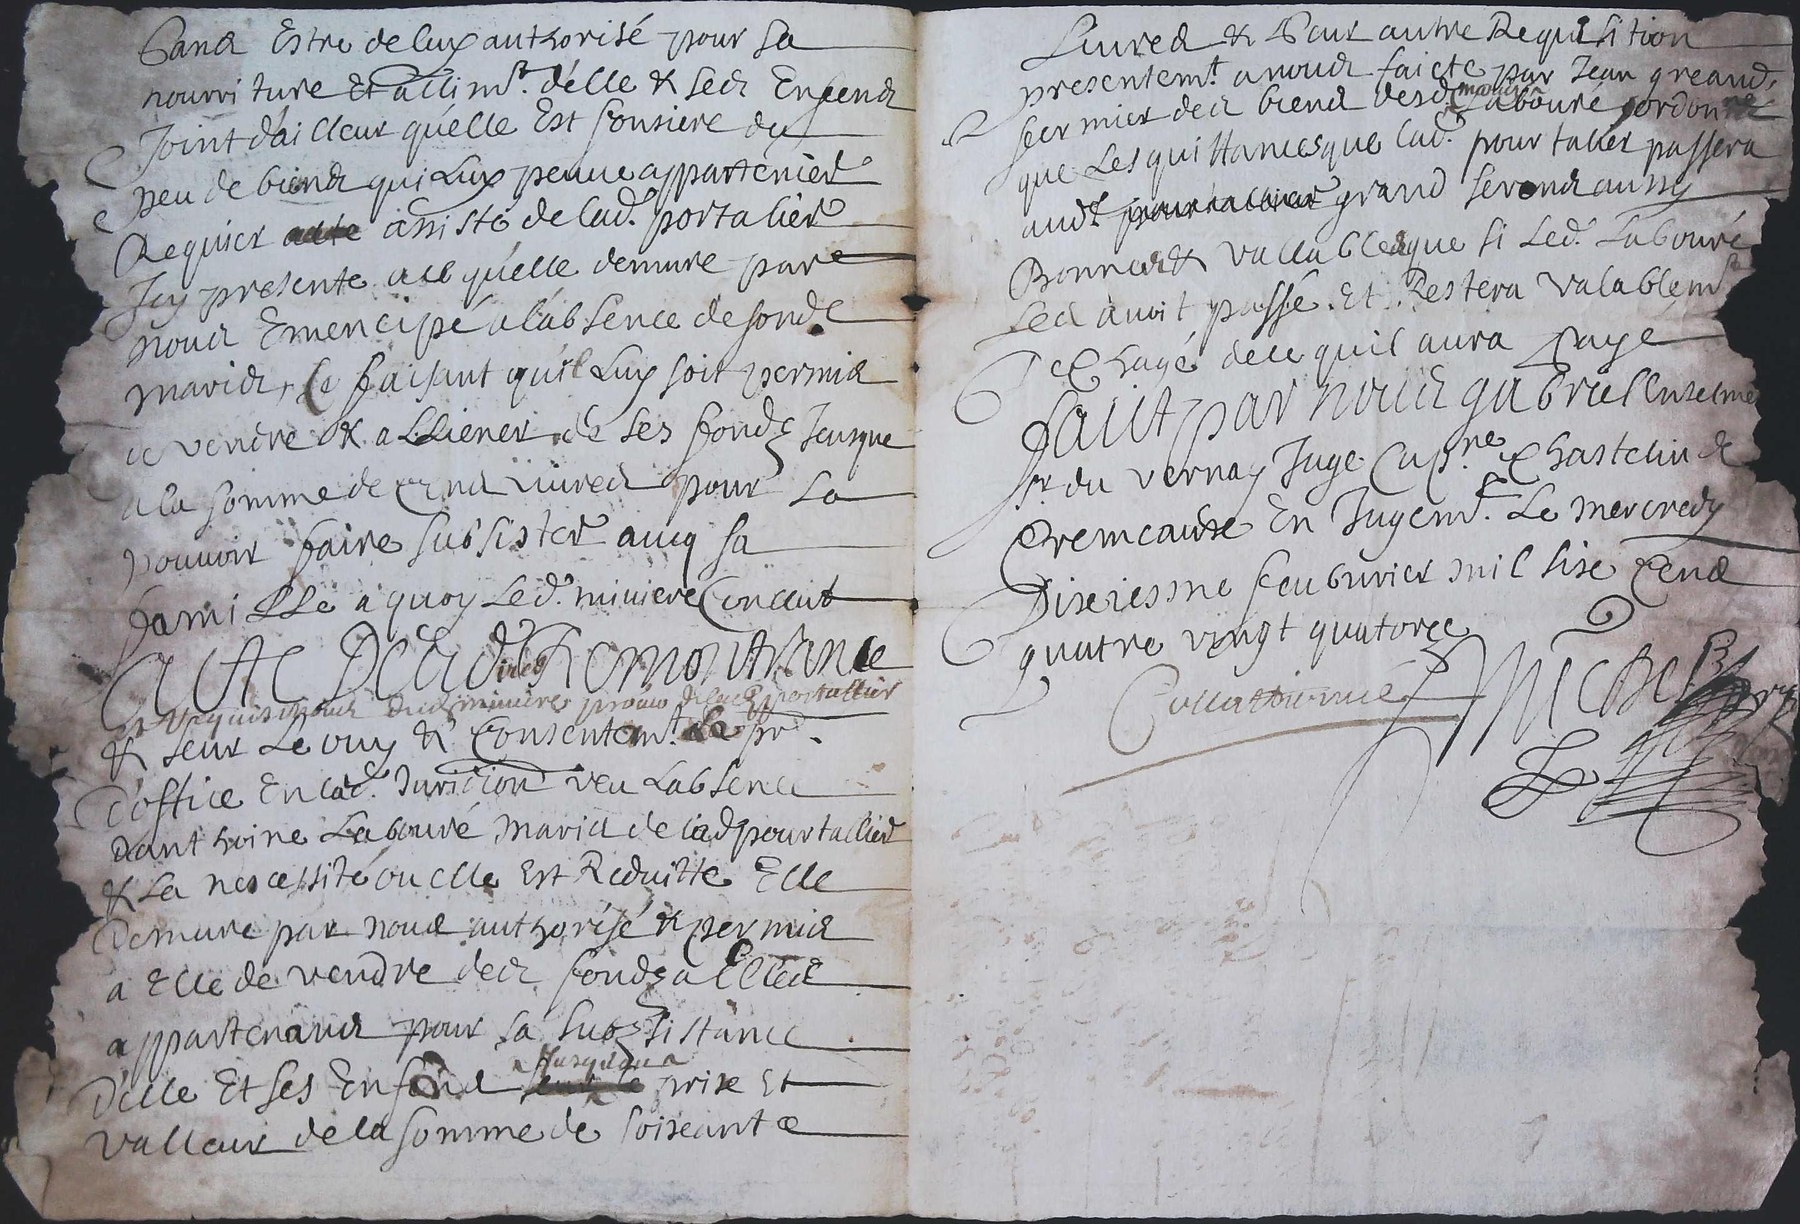 Sans Estre de luy authorisé pour sa
nourriture Et allimt. d'elle & ses Enfens
Joint d'ailleur qu'elle Est fonsiere du
peu de biens qui Luy peuue appartenier
Requier assisté de lad. portalier
Icy presente a ce qu'elle demure par
nous Emencipé a l'absence de sond.
maris, Ce faisant qu'il Luy soit permis
de vendre & alliener de ses fondz Jeusque
a la somme de Cens liures pour La
pouuoir faire subsister aueq sa
famille a quoy Led. miniere Conclut
Acte Desd. Remontrance
& Requisitions dud. miniere procu de lad. portallier
& seur Le ouy & Consentemt. pr.
d'office En lad. Juridiction veu Labsence
Danthoine Labouré maris de lad. pourtallier
& La nescessité ou elle Est Reduitte Elle
Demure par nous authorisé & permis
a Elle de vendre des fondz a Elles
appartenans pour sa subzistance
D'elle Et ses Enfens Jusque a prix Et
valleur de la somme de soixante
Liures & Sur autre Requisition
presentemt. a nous faicte par Jean greand,
fermier des biens desd. maries Labouré ordonné
que Les quittances que lad. pourtalier passera
aud. grand serons aussy
Bonnes & vallables que si Led. Labouré
Les auoit passé. Et Restera valablemt
dechargé de ce quil aura payé
Faict par nous gabriel Enselme
sr du vernay Juge Capne. Chastelin de
Cremeaux En Jugemt. Le mercredy
Dixiesme feubvrier mil six Cens
quatre vingt quatorze
Collationné